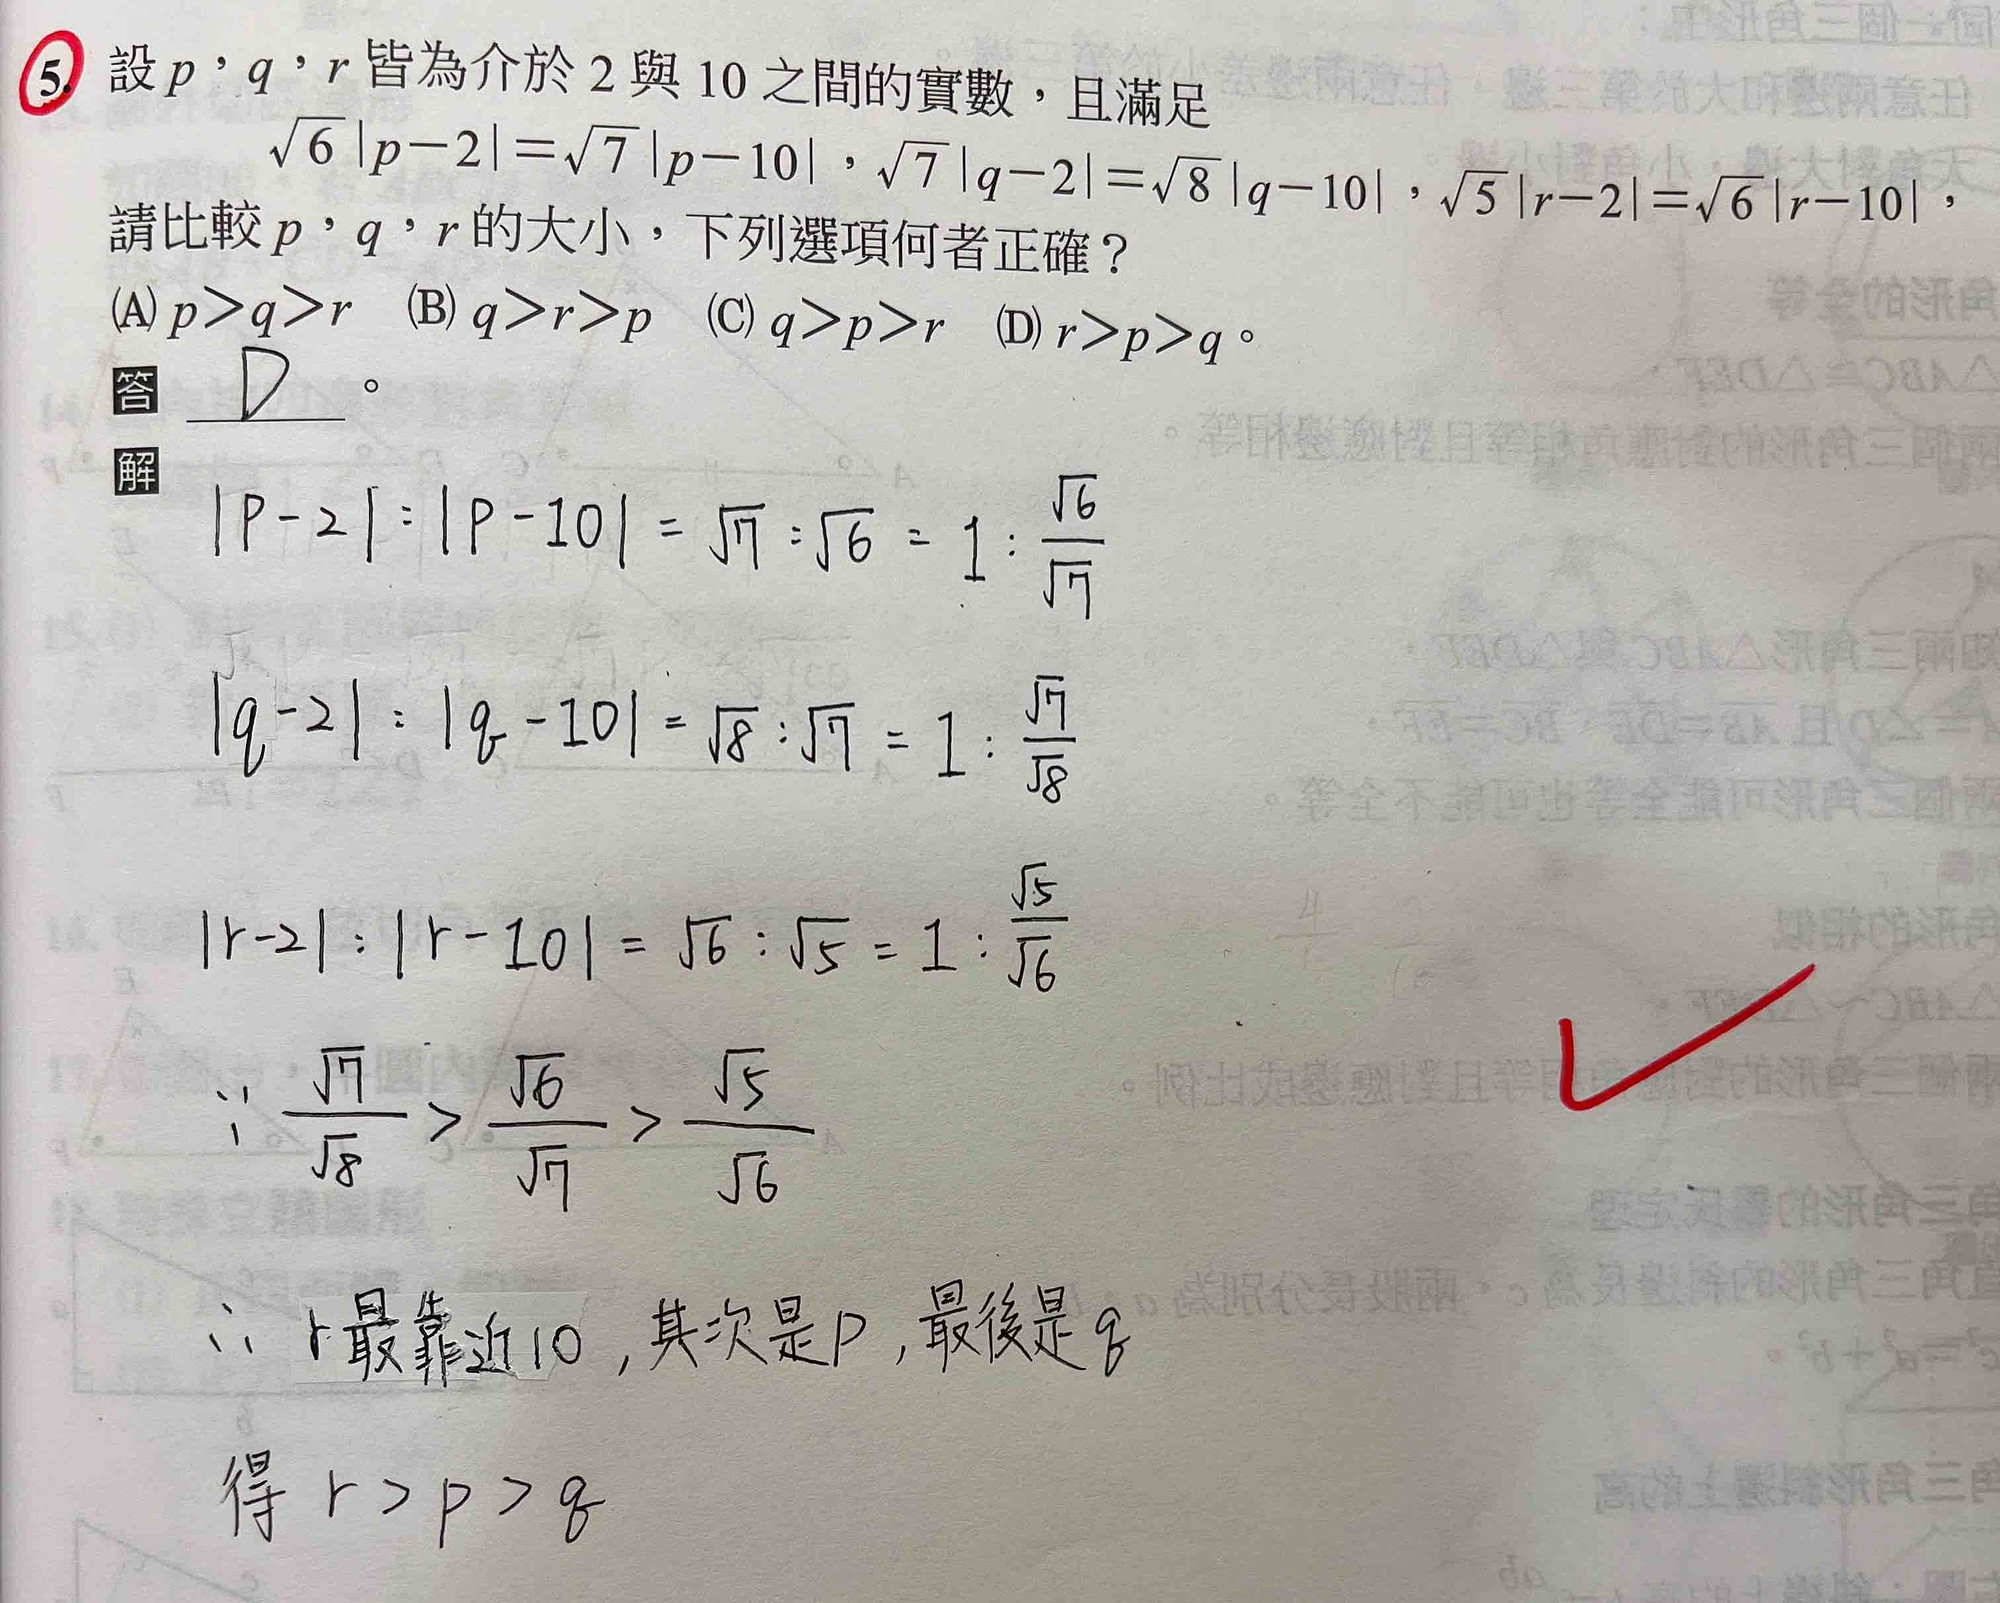 5. 設 p，q，r 皆為介於 2 與 10 之間的實數，且滿足
√6|p－2|＝√7|p－10|，√7|q－2|＝√8|q－10|，√5|r－2|＝√6|r－10|，
請比較 p，q，r 的大小，下列選項何者正確？
(A) p＞q＞r (B) q＞r＞p (C) q＞p＞r (D) r＞p＞q。
答 D 。
解
|p-2| : |p-10| = √7 : √6 = 1 : √6/√7
|q-2| : |q-10| = √8 : √7 = 1 : √7/√8
|r-2| : |r-10| = √6 : √5 = 1 : √5/√6
∵ √7/√8 > √6/√7 > √5/√6
∴ r最靠近10, 其次是p, 最後是q
得 r > p > q